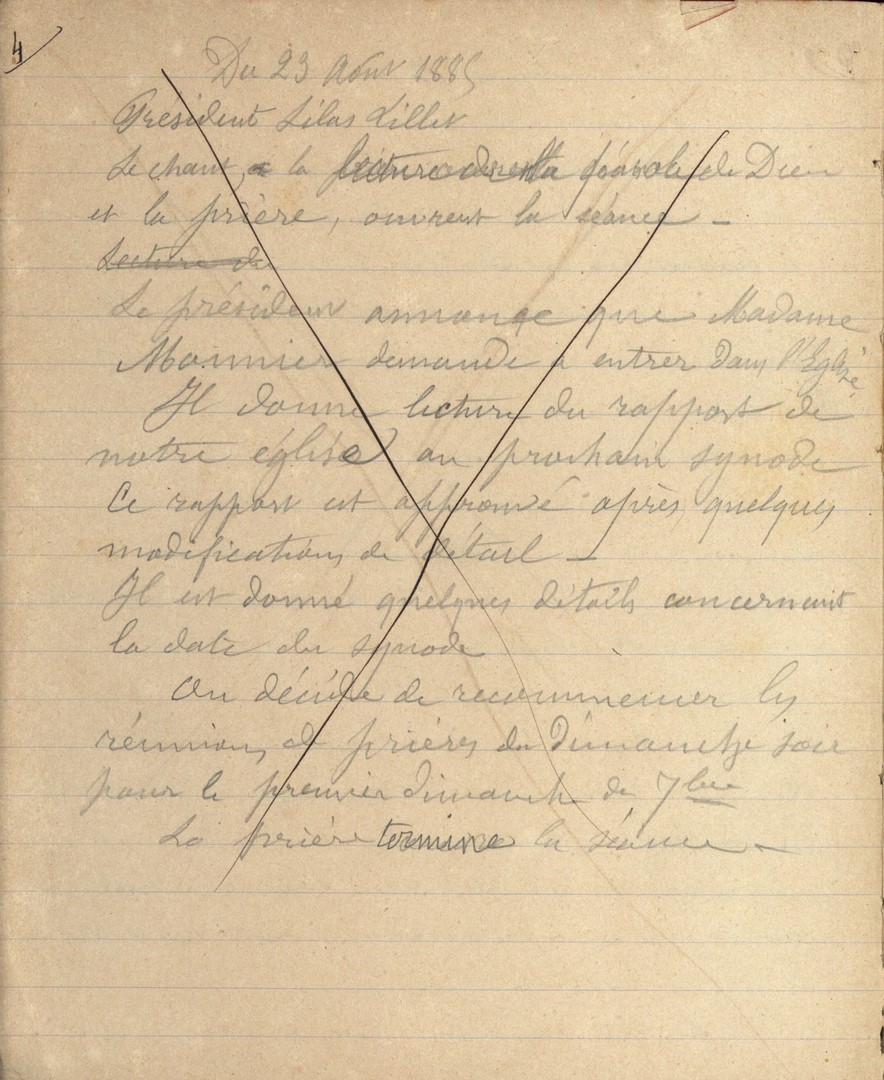 4
Du 23 Août 1885
Président Silas Lillet
Le chant, la lecture de la parole de Dieu
et la prière, ouvrent la séance –
Lecture de
Le président annonce que Madame
Monnier demande à entrer dans l'Eglise
Il donne lecture du rapport de
notre église au prochain synode
Ce rapport est approuvé après quelques
modifications de détail –
Il est donné quelques détails concernant
la date du synode
On décide de recommencer les
réunions de prières du Dimanche soir
pour le premier dimanche de 7bre
La prière termine la séance –